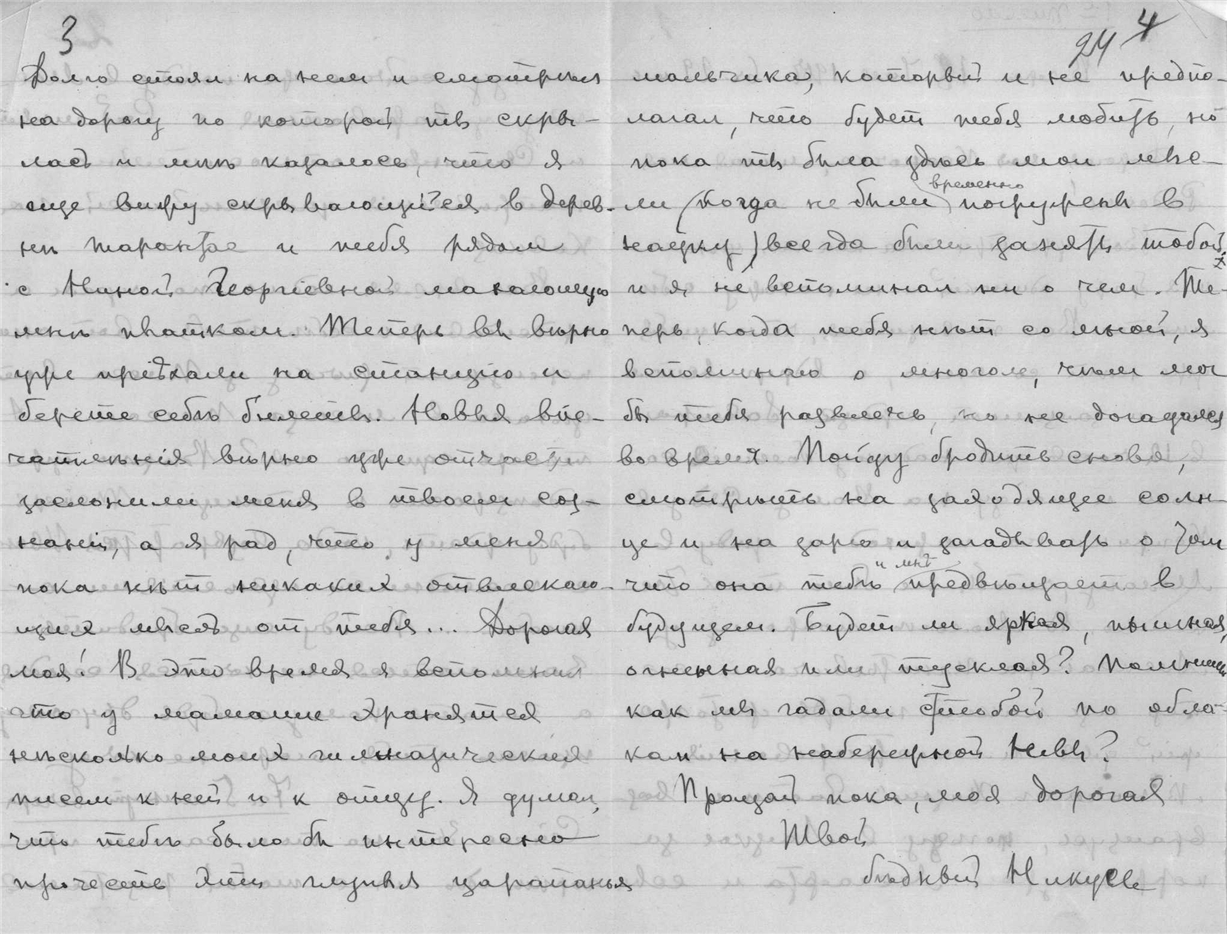 3
Долго стоял на нем и смотрел
на дорогу по которой ты скры-
лась и мнѣ казалось, что я
еще вижу скрывающийся в дерев-
нѣ тарантас и тебя рядом
с Ниной Георгіевной махающую
мнѣ платком. Теперь вы вѣрно
уже пріѣхали на станцію и
берете себѣ билеты. Новыя впе-
чатлѣнія вѣрно уже отчасти
заслонили меня в твоем соз-
наніи, а я рад, что у меня
пока нѣт никаких отвлекаю-
щих мысль от тебя... Дорогая
моя! В это время я вспомнил
что у мамаши хранятся
нѣсколько моих гимназических
писем к ней и к отцу. Я думал,
что тебѣ было бы интересно
прочесть эти глупыя царапанья
24 4
мальчика, который и не предпо-
лагал, что будет тебя любить, но
пока ты была здѣсь мои мыс-
ли (когда не были временно погружены в
науку) всегда были заняты тобой,
и я не вспоминал ни о чем. Те-
перь, когда тебя нѣт со мной, я
вспоминаю о многом, чѣм мог
бы тебя развлечь, но не догадался
во время. Пойду бродить снова,
смотрѣть на заходящее солн-
це и на зарю и загадывать о том
что она тебѣ и мнѣ предвѣщает в
будущем. Будет ли яркая, пышная,
огненная или тусклая? Помнишь
как мы гадали с тобой по обла-
кам на набережной Невы?
Прощай пока, моя дорогая
Твой
бѣдный Никуся